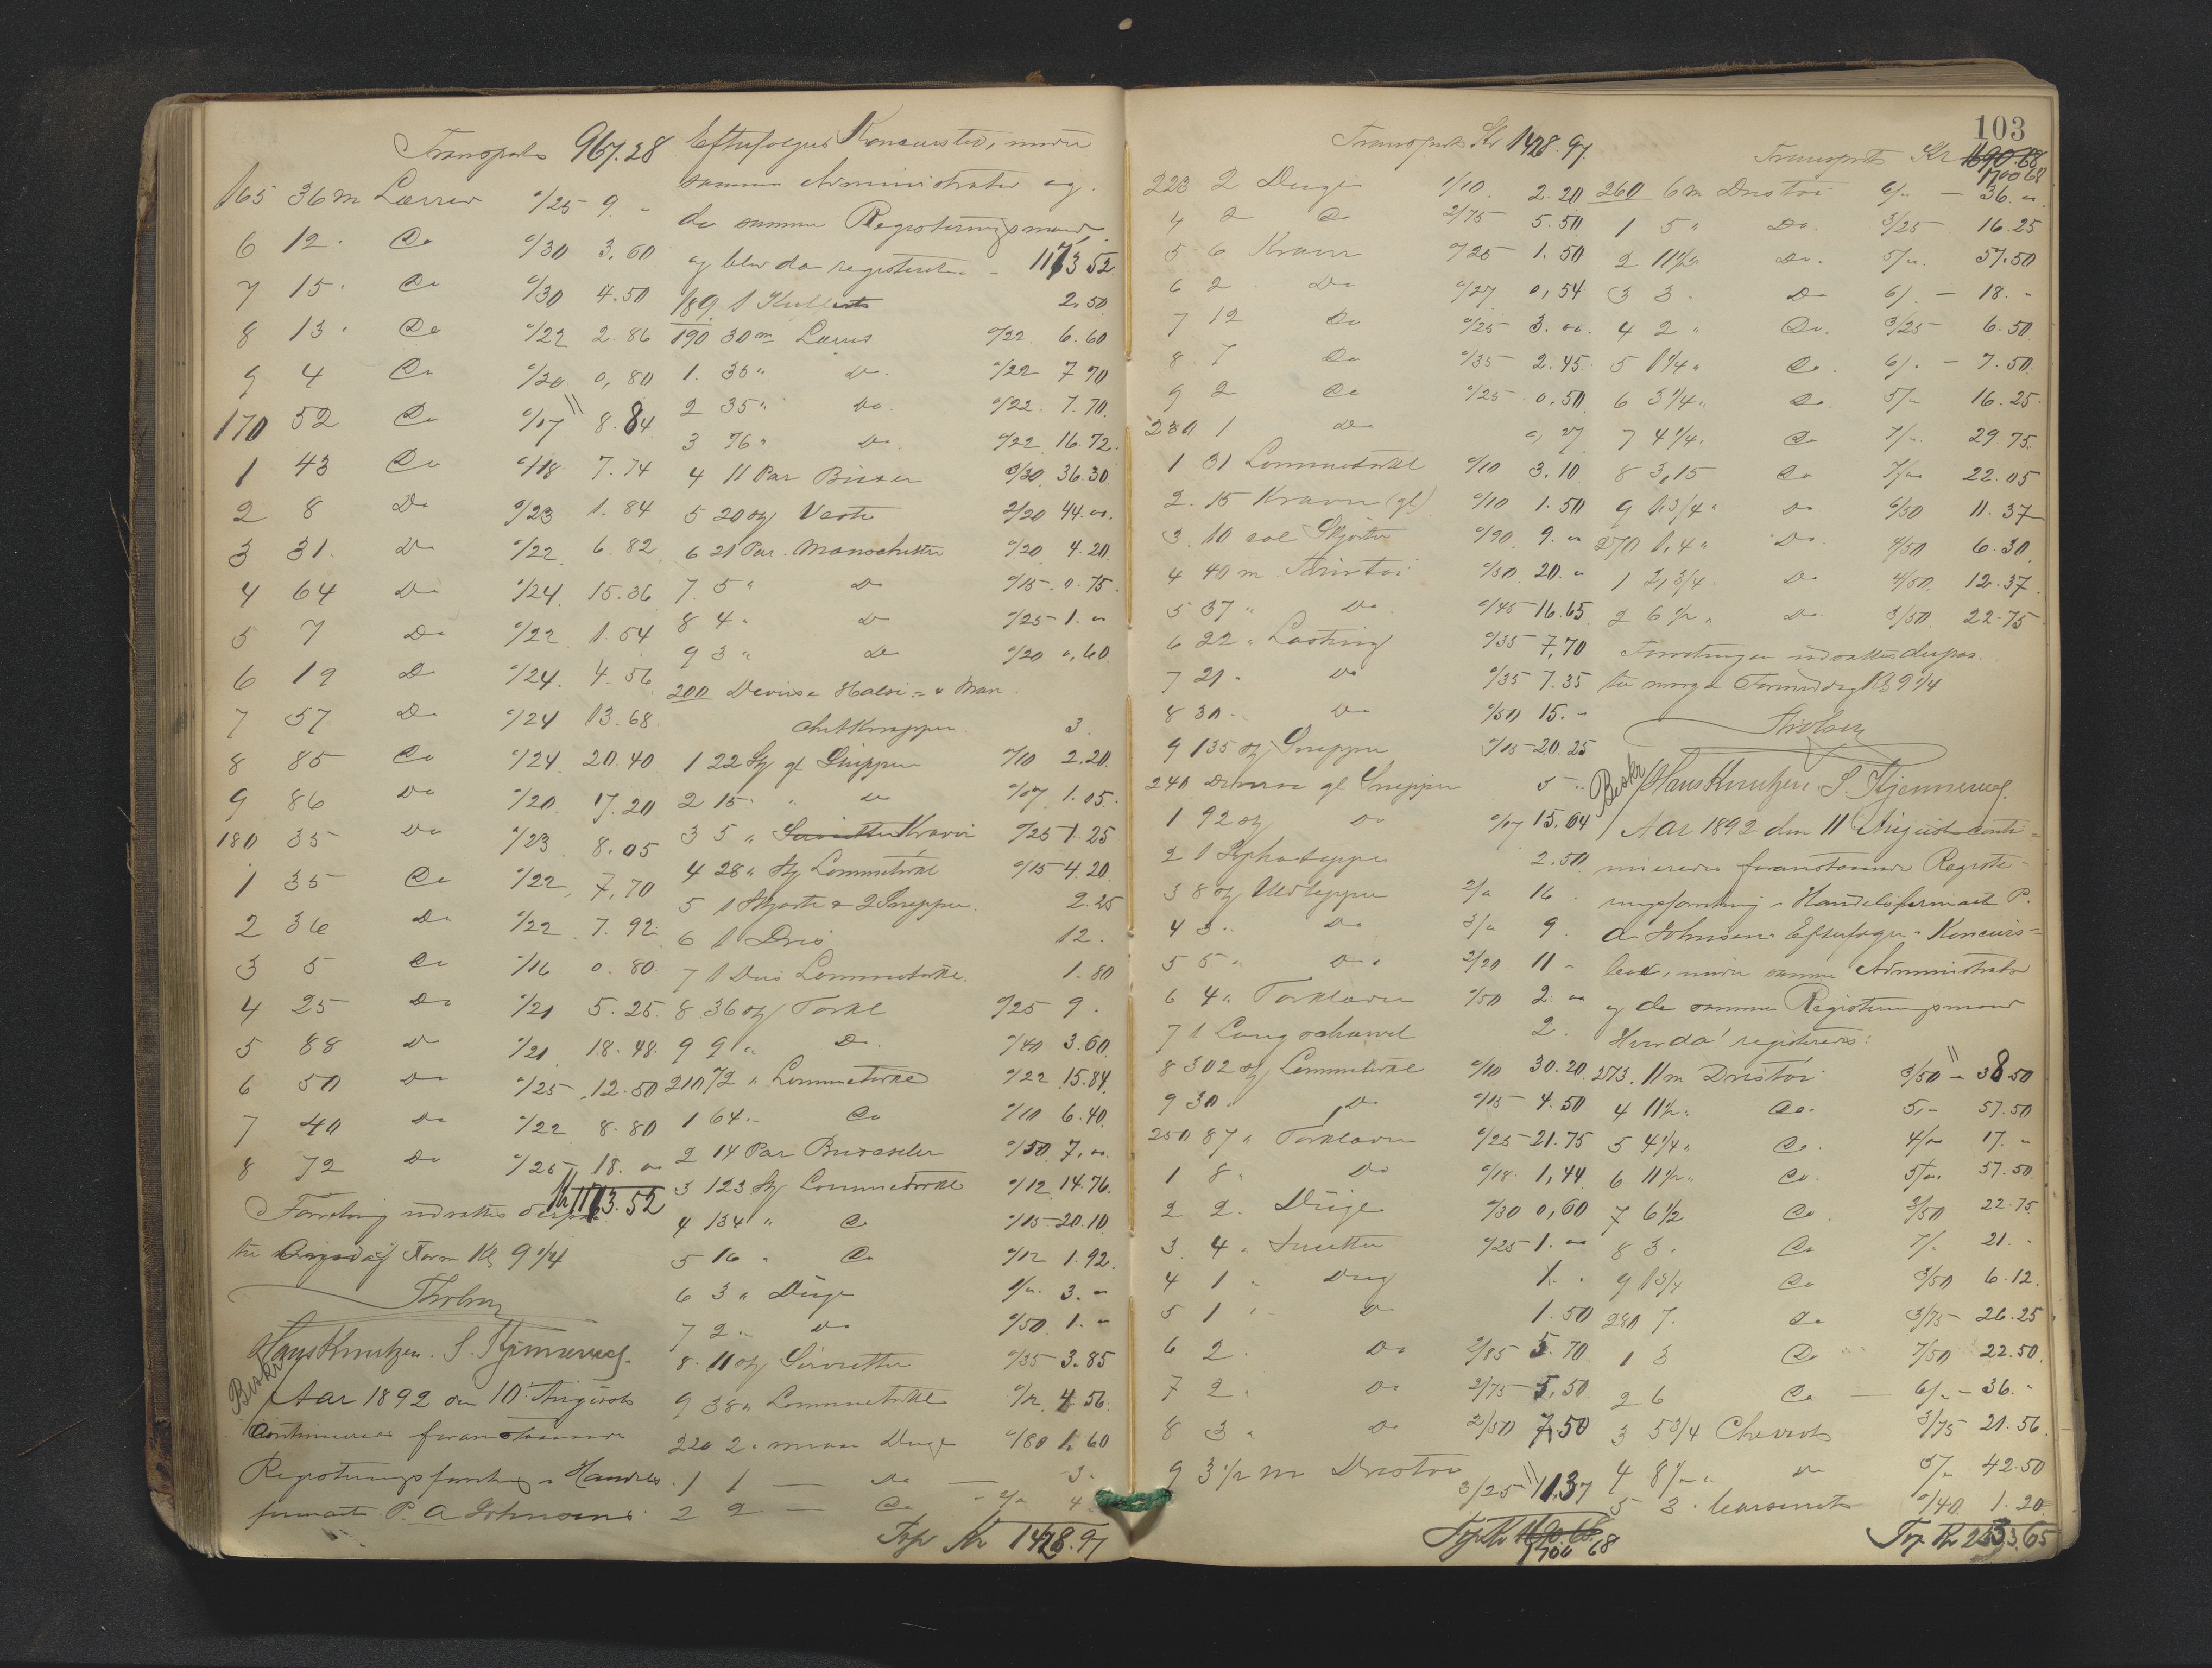 Transport 967.28
165 36 m Lærred 0/25 9. "
6 12 . Do 0/30 3,60
7 15 . Do 0/30 4.50
8 13 . Do 0/22 2.86
9 4 Do 0/20 0,80
170 52 Do 0/17 8.84
1 43 Do 0/18 7.74
2 8 Do 0/23 1.84
3 31. Do 0/22 6.82
4 64 Do 0/24 15.36
5 7 Do 0/22 1.54
6 19 Do 0/24 4.56
7 57 Do 0/24 13.68
8 85 Do 0/24 20.40
9 86 Do 0/20 17.20
180 35 Do 0/23 8.05
1 35 Do 0/22 7,70
2 36 Do 0/22 7.92
3 5 Do 0/16 0.80
4 25 Do 0/21 5.25
5 88 Do 0/21 18.48
6 50 Do 0/25 12.50
7 40 Do 0/22 8.80
8 72 Do 0/25 18. "
Kr 1173.52
Forretning udsattes
til Form Kl 9 1/4
Hans Knutzen. S.
Beskr
Aar 1892 den 10 August
Continueredes foranstaaende
Registreringsforretning i Handels-
firmaet P. A. Johnsens
Efterfølgers Concursbo, under
samme Administrator og
de samme Registreringsmænd,
og blev da registreret 1173 52
189. 1 2.50
190 30 m Lærred 0/22 6.60
1. 35 " Do 0/22 7 70
2 35 " Do 0/22 7.70
3 76 " Do 0/22 16.72
4 11 Par Buxer 3/30 36.30
5 20 st Veste 2/20 44.00
6 21 Par Manschetter 0/20 4.20
7. 5 " Do 0/15 0.75
8 4 " Do 0/25 1. "
9 3 " Do 0/20 0,60
200 Diverse Halsi- & Man
chetknapper 3.
1 22 St gl Snipper 0/10 2.20
2 15 " Do 0/07 1.05
3 5 " Kraver 0/25 1.25
4 28 " St Lommetørkl 0/15 4.20
5 1 Skjorte & 2 Snipper 2.25
6 1 12.
7 1 Dus Lommetørkl. 1.80
8 36 st Tørkl 0/25 9.
9 9 " Do 0/40 3.60
210 72 " Lommetørkl 0/22 15.84
1 64 " Do 0/10 6.40
2 14 Par Buxeseler 0/50 7.00
3 123 St Lommetørkl 0/12 14.76
4 134 " Do 0/15 20.10
5 16 " Do 0/12 1.92
6 3 " Duge 1/" 3. "
7 2 " Do 0/50 1. "
8 11 st Servietter 0/35 3.85
9 38 " Lommetørkl 0/12 4.56
220 2 " smaa Duge 0/80 1.60
1 1 — Do — 3.
2 2 — Do 2/" 4
Trp Kr 1428.97
103
Transport Kr 1428.97
223 2 Duge 1/10 2.20
4 2 Do 2/75 5.50
5 6 Kraver 0/25 1.50
6 2 . Do 0/27 0,54
7 12 Do 0/25 3.00
8 7 Do 0/35 2.45
9 2 Do 0/25 0.50
230 1 Do 0,27
1 31 Lommetørkl 0/10 3.10
2. 15 Kraver (gl) 0/10 1.50
3. 10 Skjorter 0/90 9. "
4 40 m 0/50 20. "
5 37 " Do 0/45 16.65
6 22 " Lasting 0/35 7,70
7 21 " Do 0/35 7.35
8 30 " Do 0/50 15. "
9 135 st Snipper 0/15 20.25
240 Diverse gl Snipper 5 "
1 92 st Do 0/17 15.64
2 1 Sophateppe 2.50
3 8 st 2/" 16
4 3 " Do 3/" 9
5 5 " Do 2/20 11 "
6 4 " Tørklæder 0/50 2. "
7 1 2.
8 302 st Lommetørkl 0/10 30.20
9 30 " Do 0/15 4.50
250 87 " Tørklæder 0/25 21.75
1 8 " Do 0/18 1,44
2 2 " Duge 0/30 0,60
3 4 " 0/25 1. "
4 1 " Dug 1. "
5 1 " Do 1.50
6 2 " Do 2/85 5.70
7 2 " Do 2/75 5,50
8 3 " Do 2/50 7.50
9 3 1/2 m Drestøi 3/25 11.37
Trp Kr 1690.68
1700 68
Transport Kr 1690.68
1700 68
260 6 m Drestøi 6/" — 36. "
1 5 " Do. 3/25 16.25
2 11 1/2 " Do. 5/" 57.50
3 3 " Do 6/" — 18. "
4 2 " Do. 3/25 6.50
5 1 1/4 " Do. 6/" — 7.50
6 3 1/4 " Do. 5/" 16.25
7 4 1/4 " Do 7/" 29.75
8 3,15 Do 7/" 22.05
9 1 3/4 " Do 6/50 11.37
270 1,4 " Do 4/50 6.30
1 2 3/4 " Do 4/50 12.37
2 6 1/2 " Do 3/50 22.75
Forretningen udsattes derpaa
til morgen Formiddag Kl 9 1/4
Beskr
Hans Knutzen. S.
Aar 1892 den 11 August conti-
nueredes foranstaaende Registre-
ringsforretning i Handelsfirmaet P.
A Johnsens Efterfølgers Koncurs-
bo, under samme Administrator
og de samme Registreringsmænd
Hvor da registreredes:
273. 11 m Drestøi 3/50 38.50
4 11 1/2 " Do. 5/" 57.50
5 4 1/4 " Do. 4/" 17. "
6 11 1/2 " Do. 5/" 57.50
7 6 1/2 Do. 3/50 22.75
8 3 " Do 7/" 21. "
9 1 3/4 Do 3/50 6.12
280 7. Do 3/75 26.25
1 3 Do 7/50 22.50
2 6 Do — 6/" — 36. "
3 5 3/4 Cheviot 3/75 21.56
4 8 1/2 " Do 5/" 42.50
5 3 " 0/40 1.20
Trp. Kr 2333.65